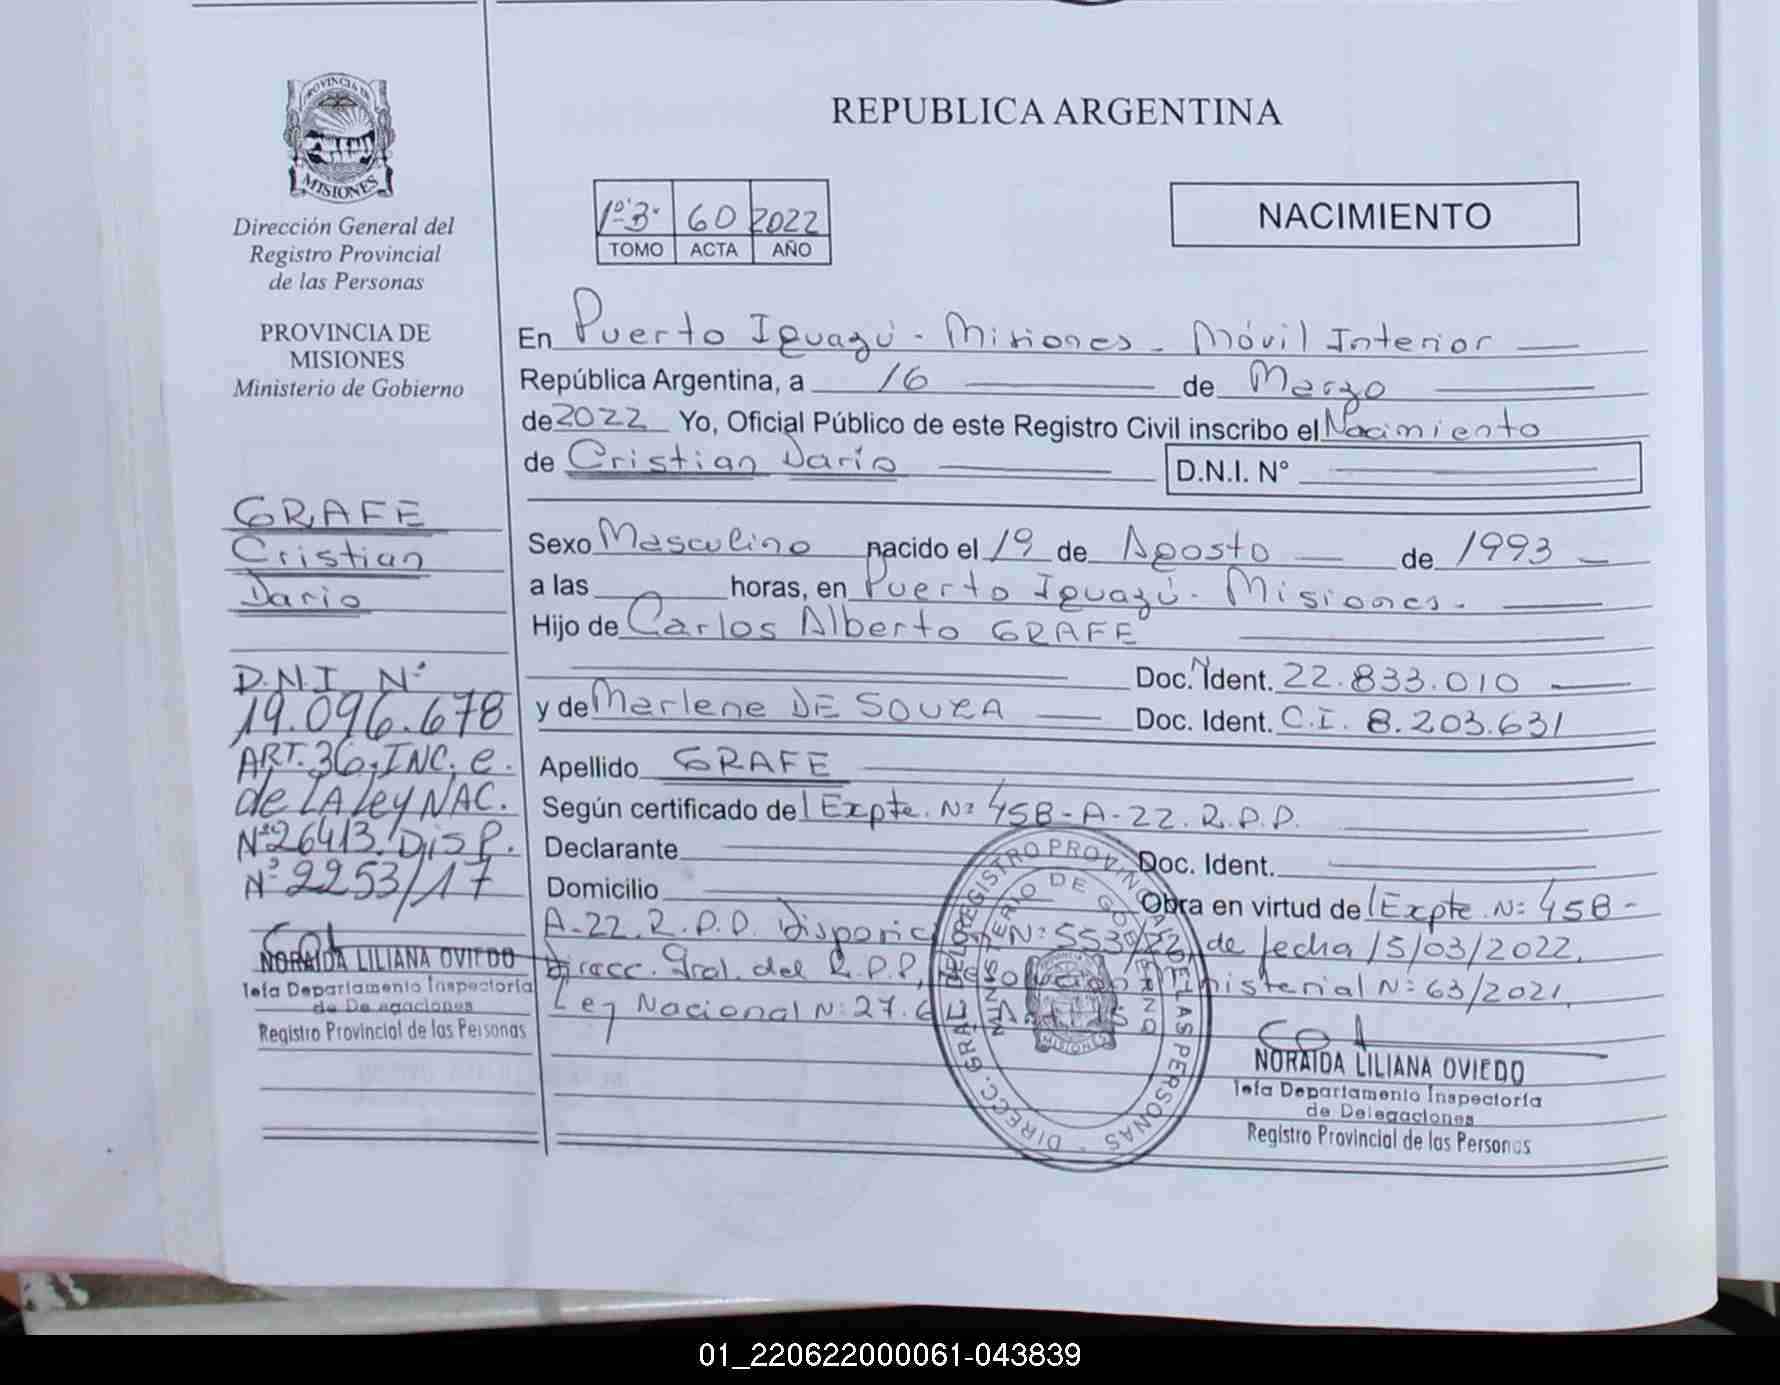 PROVINCIA DE
MISIONES
Dirección General del
Registro Provincial
de las Personas
PROVINCIA DE
MISIONES
Ministerio de Gobierno
GRAFE
Cristian
Dario
D.N.I Nº
19.096.678
ART. 36, INC. e.
de LA Ley NAC.
Nº 26413. DISP.
Nº 2253/17
NORAIDA LILIANA OVIEDO
Jefa Departamento Inspectoría
de Delegaciones
Registro Provincial de las Personas
REPUBLICA ARGENTINA
1º B. 60 2022
TOMO ACTA AÑO
NACIMIENTO
En Puerto Iguazú - Misiones - Móvil Interior
República Argentina, a 16 de Marzo
de 2022 Yo, Oficial Público de este Registro Civil inscribo el Nacimiento
de Cristian Darío D.N.I. N°
Sexo Masculino nacido el 19 de Agosto de 1993
a las horas, en Puerto Iguazú - Misiones.
Hijo de Carlos Alberto GRAFE
Doc. Ident. 22.833.010
y de Marlene DE SOUZA Doc. Ident. C.I. 8.203.631
Apellido GRAFE
Según certificado del Expte. Nº 458-A-22. R.P.P.
Declarante Doc. Ident.
Domicilio Obra en virtud del Expte. Nº 458-
A-22. R.P.P. Nº 553/22 de fecha 15/03/2022,
Direcc. Gral. del R.P.P, Ministerial Nº 63/2021,
Ley Nacional Nº 27.6
DIRECC. GRAL. DEL REGISTRO PROVINCIAL DE LAS PERSONAS
MINISTERIO DE GOBIERNO
MISIONES
NORAIDA LILIANA OVIEDO
Jefa Departamento Inspectoría
de Delegaciones
Registro Provincial de las Personas
01_220622000061-043839